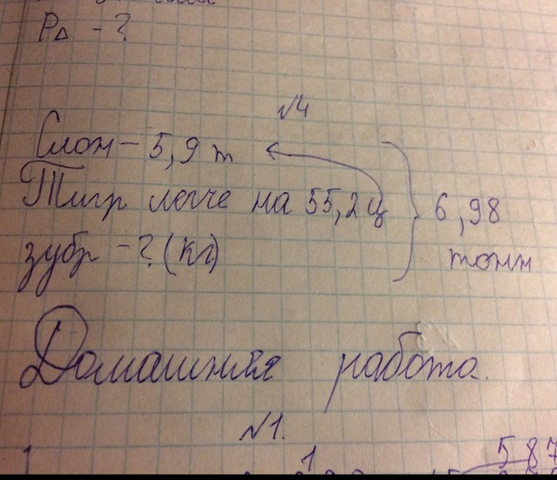 P△ - ?
№4
Слон – 5,9 т
Тигр легче на 55,2ц } 6,98
зубр – ? (кг) тонн
Домашняя работа.
№1.
587